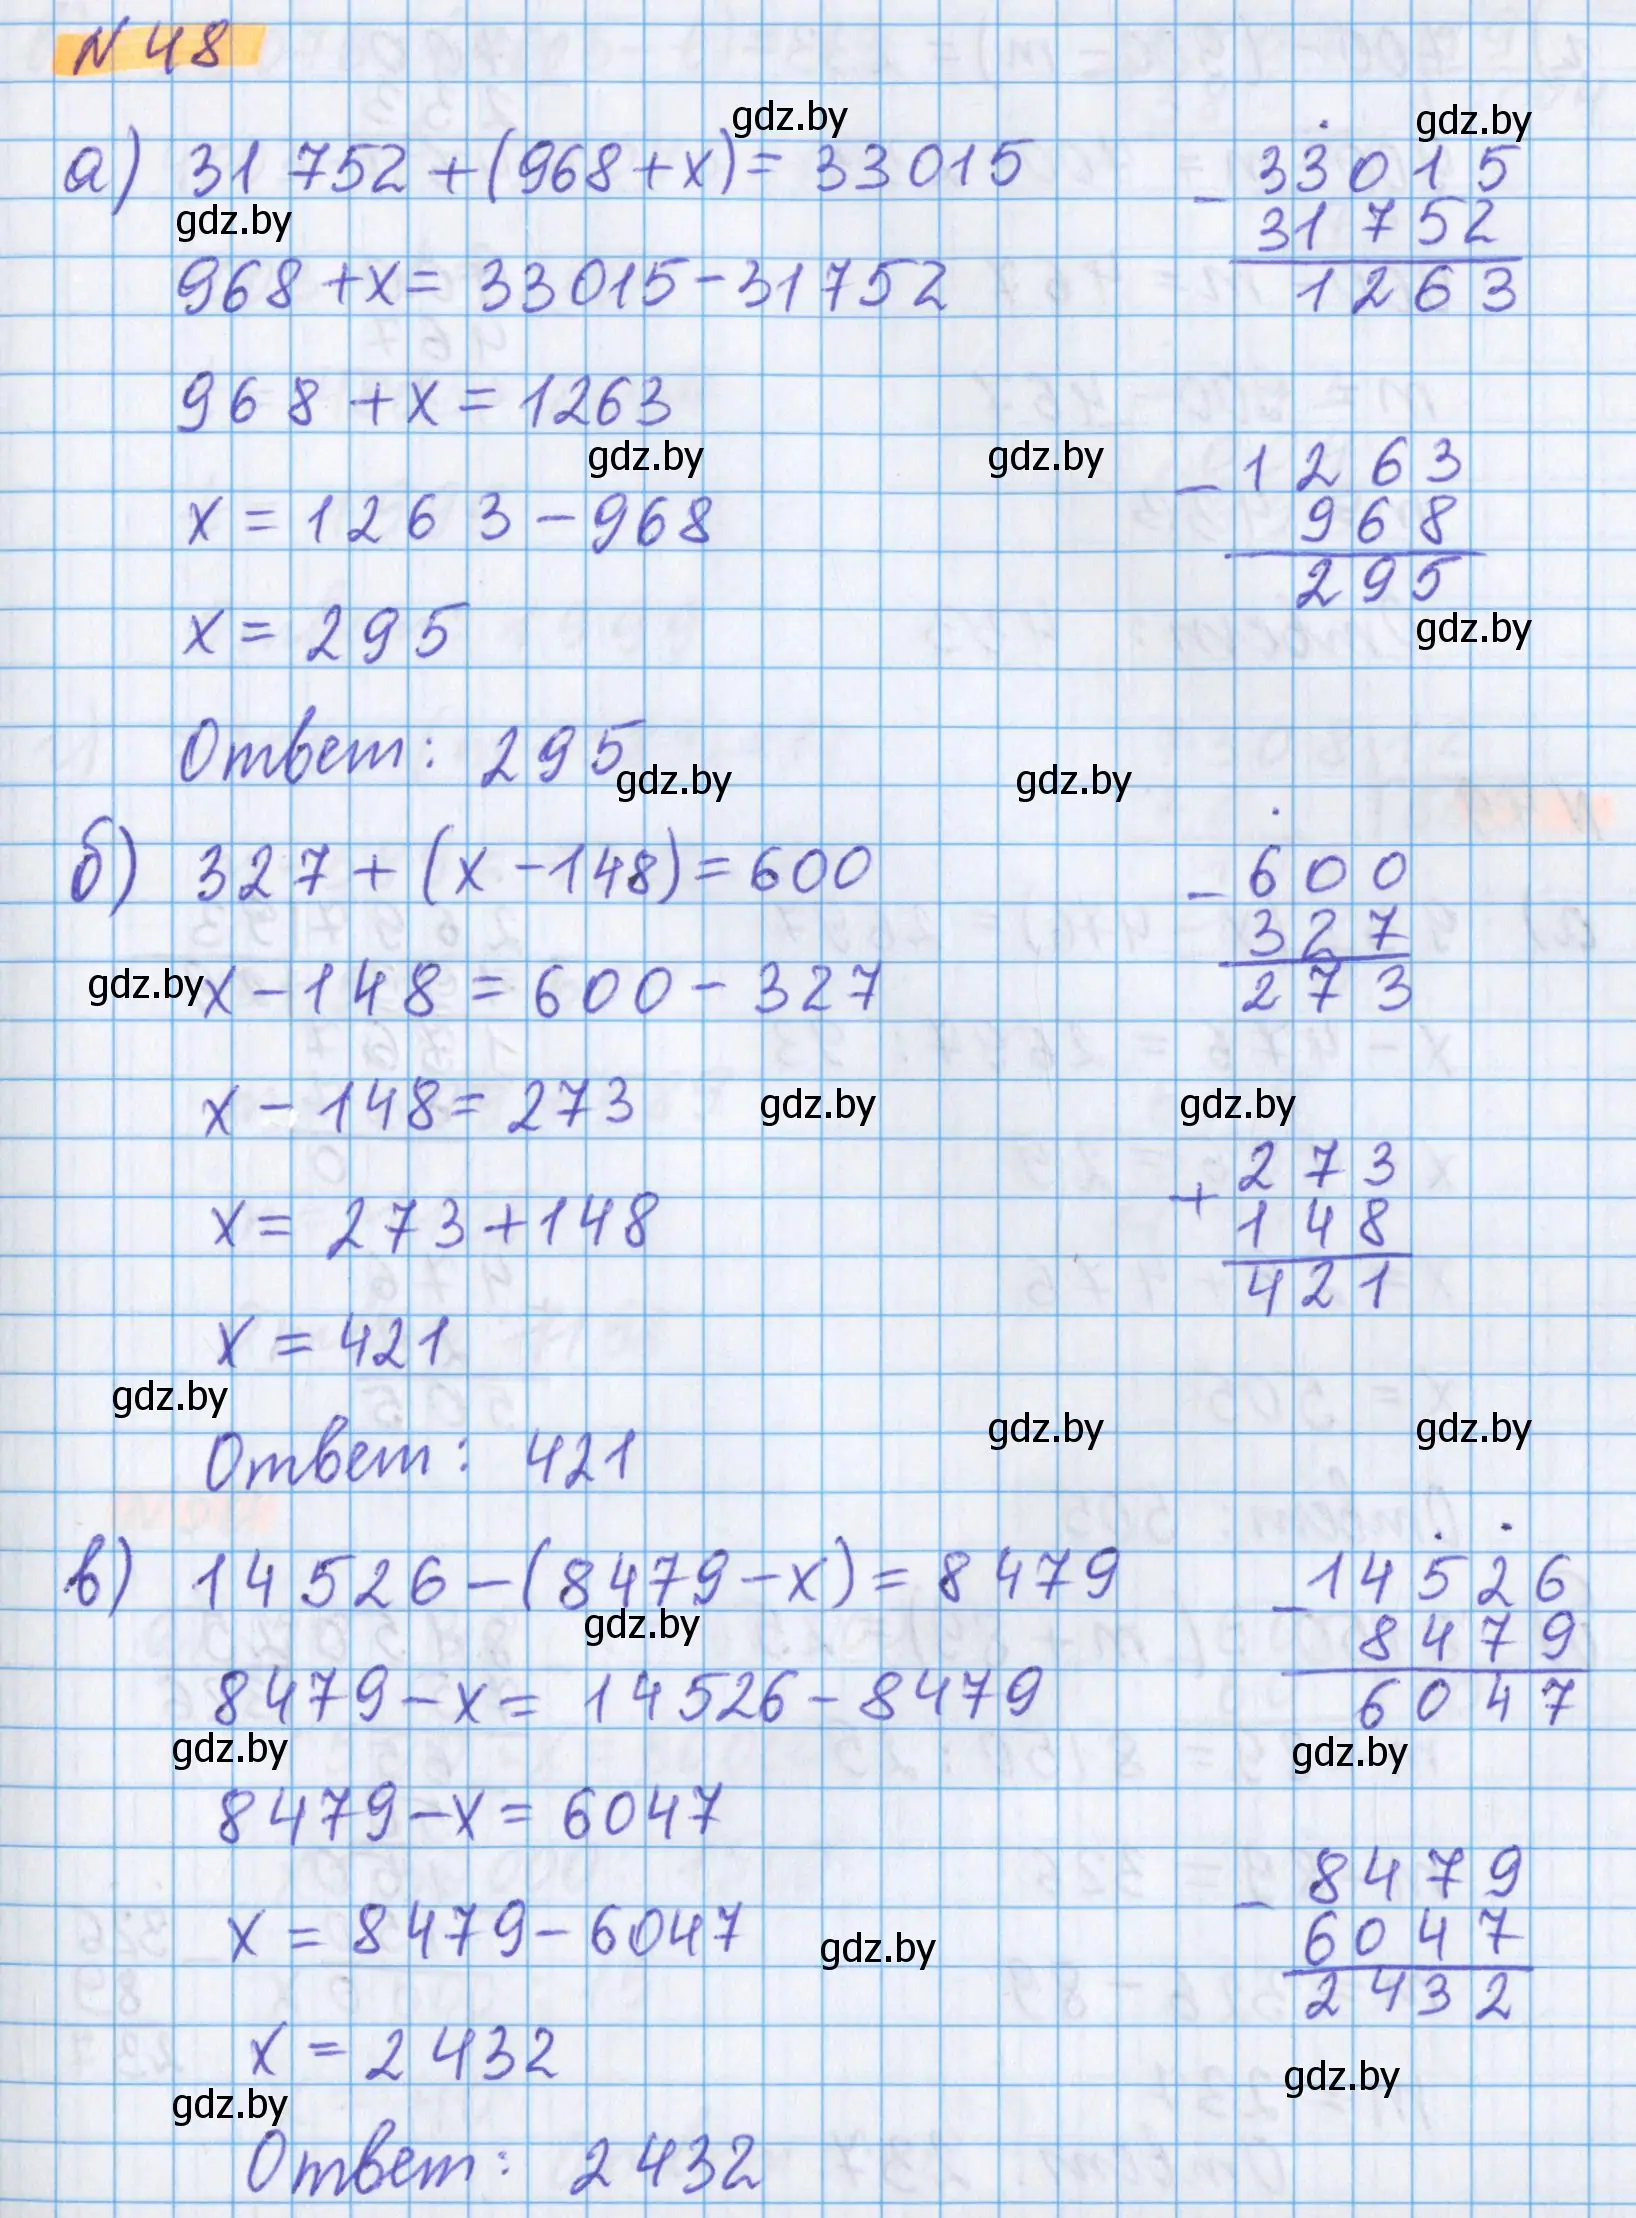 N 48
gdz.by
gdz.by
а) 31 752 + (968 + x) = 33 015
33015
- 31752
1263
gdz.by
968 + x = 33015 - 31752
968 + x = 1263
gdz.by
gdz.by
1263
- 968
295
x = 1263 - 968
x = 295
gdz.by
Ответ: 295
gdz.by
gdz.by
б) 327 + (x - 148) = 600
600
- 327
273
gdz.by
x - 148 = 600 - 327
x - 148 = 273
gdz.by
gdz.by
273
+ 148
421
x = 273 + 148
x = 421
gdz.by
gdz.by
gdz.by
Ответ: 421
в) 14526 - (8479 - x) = 8479
14526
- 8479
6047
gdz.by
8479 - x = 14526 - 8479
gdz.by
gdz.by
8479 - x = 6047
8479
- 6047
2432
x = 8479 - 6047
gdz.by
x = 2432
gdz.by
gdz.by
Ответ: 2432